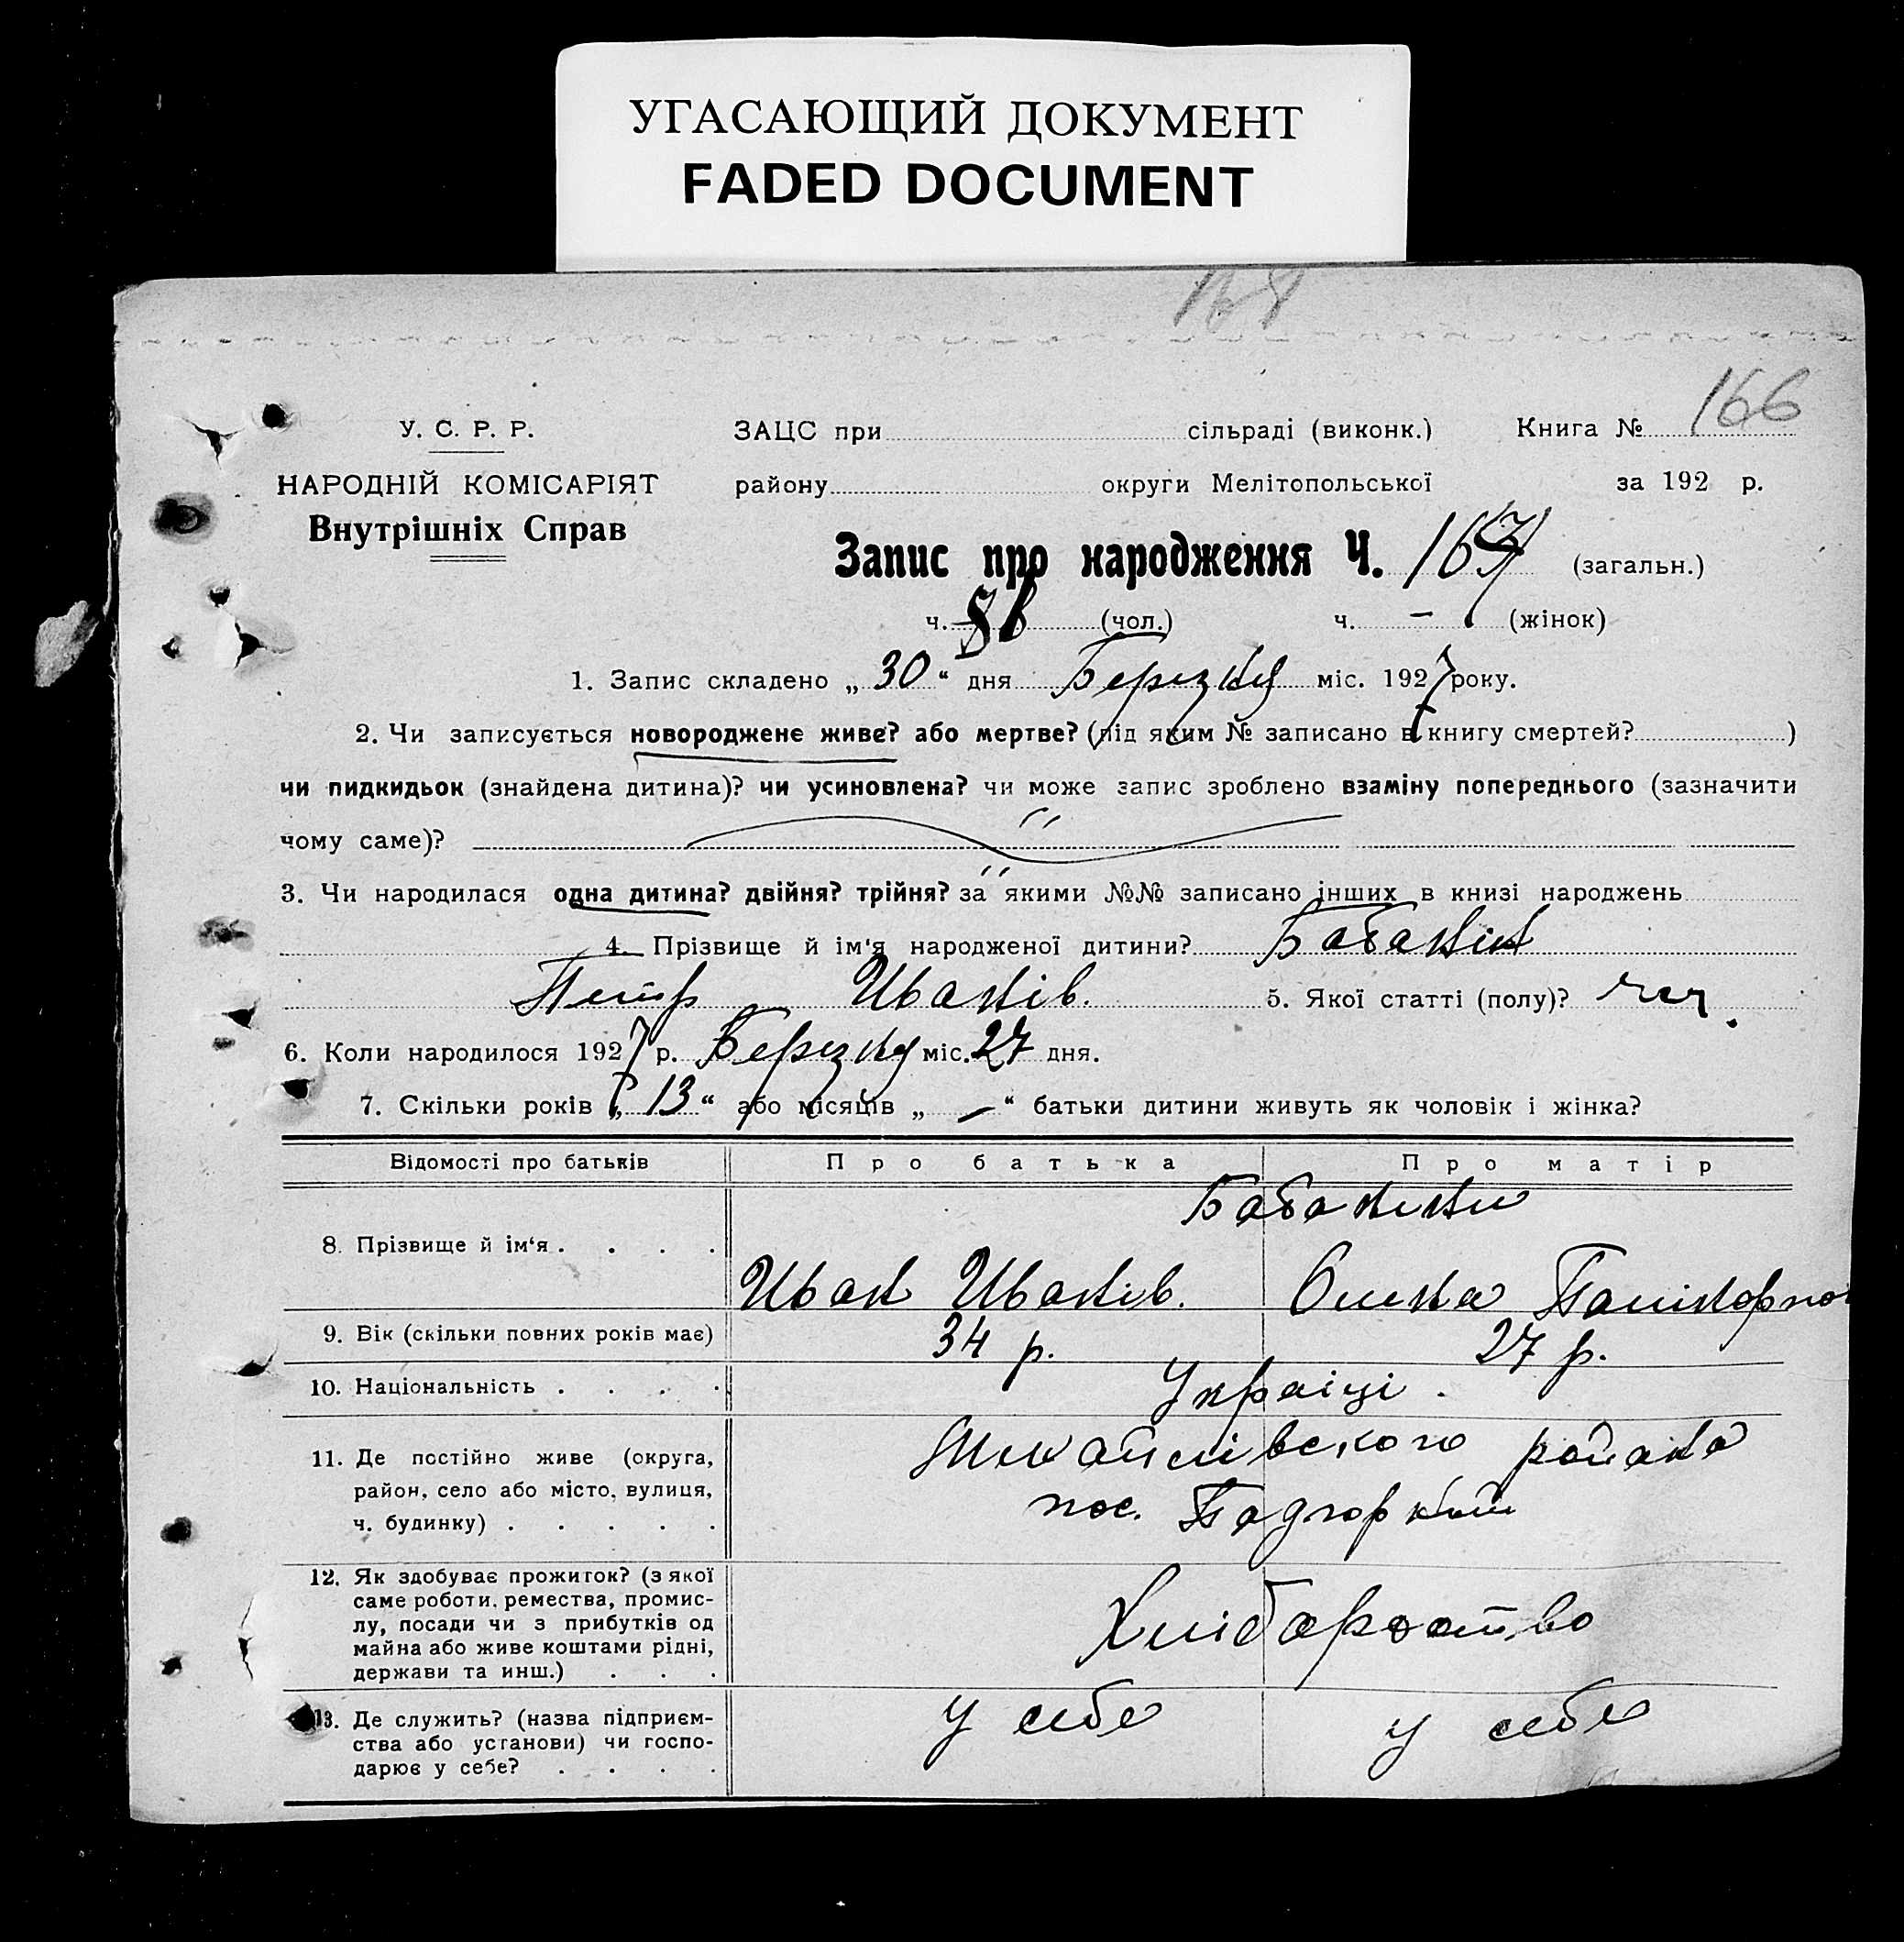 УГАСАЮЩИЙ ДОКУМЕНТ
FADED DOCUMENT
166
У. С. Р. Р.
ЗАЦС при сільраді (виконк.) Книга №
НАРОДНІЙ КОМІСАРІЯТ
району округи Мелітопольської за 192 р.
Внутрішніх Справ
Запис про народження Ч. 167 (загальн.)
ч. (чол.) ч. – (жінок)
1. Запис складено „ 30 “ дня Березня міс. 1927 року.
2. Чи записується новороджене живе? або мертве? (під яким № записано в книгу смертей? )
чи пидкидьок (знайдена дитина)? чи усиновлена? чи може запис зроблено взаміну попереднього (зазначити
чому саме)?
3. Чи народилася одна дитина? двійня? трійня? за якими №№ записано інших в книзі народжень
4. Прізвище й ім‘я народженої дитини? Бабанін
Петр Иванів. 5. Якої статті (полу)? чч.
6. Коли народилося 1927 р. Березня міс. 27 дня.
7. Скільки років „ 13 “ або місяців „ – “ батьки дитини живуть як чоловік і жінка?
Відомості про батьків Про батька Про матір
Бабанини
8. Прізвище й ім‘я . . . .
Иван Иванів. Олена
9. Вік (скільки повних років має) 34 р. 27 р.
10. Національність . . . . Україці.
11. Де постійно живе (округа, Михайлівского района
район, село або місто, вулиця, пос. Подгорный
ч. будинку) . . . . .
12. Як здобуває прожиток? (з якої
саме роботи, ремества, промис-
лу, посади чи з прибутків од Хліборобство
майна або живе коштами рідні,
держави та инш.) . . .
13. Де служить? (назва підприєм- у себе у себе
ства або установи) чи госпо-
дарює у себе? . . . .